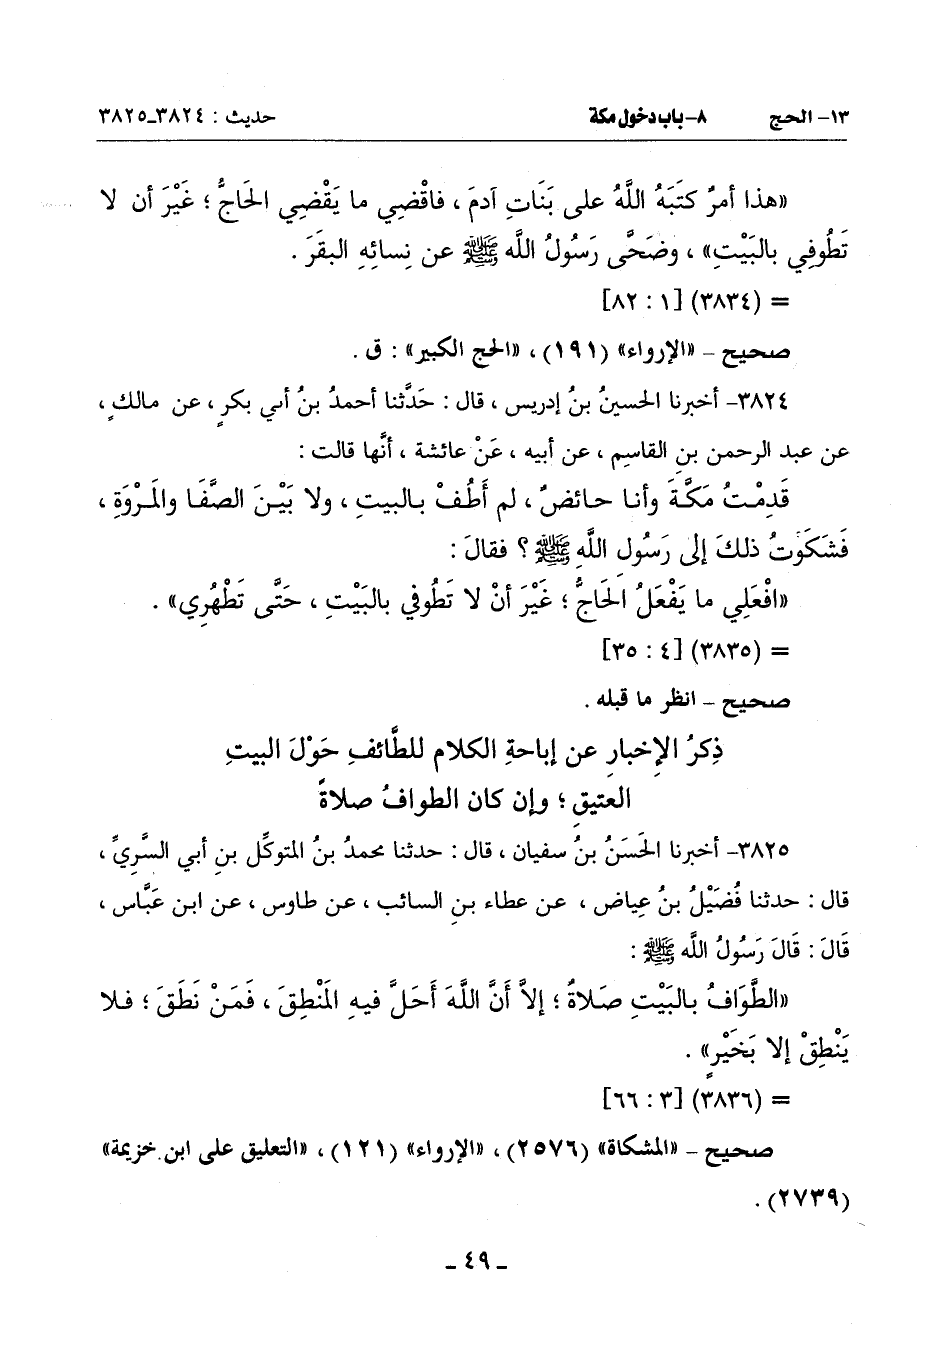 ١٣- الحج ٨- باب دخول مكة حديث : ٣٨٢٤ـ٣٨٢٥
«هذا أمرٌ كتَبَهُ اللَّهُ على بَنَاتِ آدمَ ، فاقْضِي ما يَقْضِي الحَاجُّ ؛ غَيْرَ أن لا
تَطُوفِي بالبَيْتِ» ، وضَحَّى رَسُولُ اللَّه ﷺ عن نِسائِهِ البقَرَ .
= (٣٨٣٤) [١ : ٨٢]
صحيح – «الإرواء» (١٩١) ، «الحج الكبير» : ق .
٣٨٢٤– أخبرنا الحسينُ بنُ إدريس ، قال : حَدَّثنا أحمدُ بنُ أبي بكرٍ ، عن مالكٍ ،
عن عبد الرحمن بنِ القاسِم ، عن أبيه ، عَنْ عائشة ، أنَّها قالت :
قَدِمْتُ مَكَّةَ وأنا حائضٌ ، لم أَطُفْ بالبيتِ ، ولا بَيْنَ الصَّفَا والمَرْوَةِ ،
فَشَكَوْتُ ذلكَ إلى رَسُولِ اللَّهِ ﷺ ؟ فقالَ :
«افْعَلِي ما يَفْعَلُ الحَاجُّ ؛ غَيْرَ أنْ لا تَطُوفي بالبَيْتِ ، حَتَّى تَطْهُرِي» .
= (٣٨٣٥) [٤ : ٣٥]
صحيح – انظر ما قبله .
ذِكرُ الإخبارِ عن إباحةِ الكلام للطَّائفِ حَوْلَ البيتِ
العتيقِ ؛ وإن كان الطوافُ صلاةً
٣٨٢٥– أخبرنا الحَسَنُ بنُ سفيان ، قال : حدثنا محمدُ بنُ المتوكِّل بنِ أبي السَّريِّ ،
قال : حدثنا فُضَيْلُ بنُ عِياض ، عن عطاء بنِ السائب ، عن طاوس ، عن ابن عَبَّاس ،
قَالَ : قَالَ رَسُولُ اللَّه ﷺ :
«الطَّوَافُ بالبَيْتِ صَلاةٌ ؛ إلاَّ أَنَّ اللَّهَ أَحَلَّ فيهِ المَنْطِقَ ، فَمَنْ نَطَقَ ؛ فلا
يَنْطِقْ إلا بَخَيْرٍ» .
= (٣٨٣٦) [٣ : ٦٦]
صحيح – «المشكاة» (٢٥٧٦) ، «الإرواء» (١٢١) ، «التعليق على ابن خزيمة»
(٢٧٣٩) .
ـ ٤٩ ـ